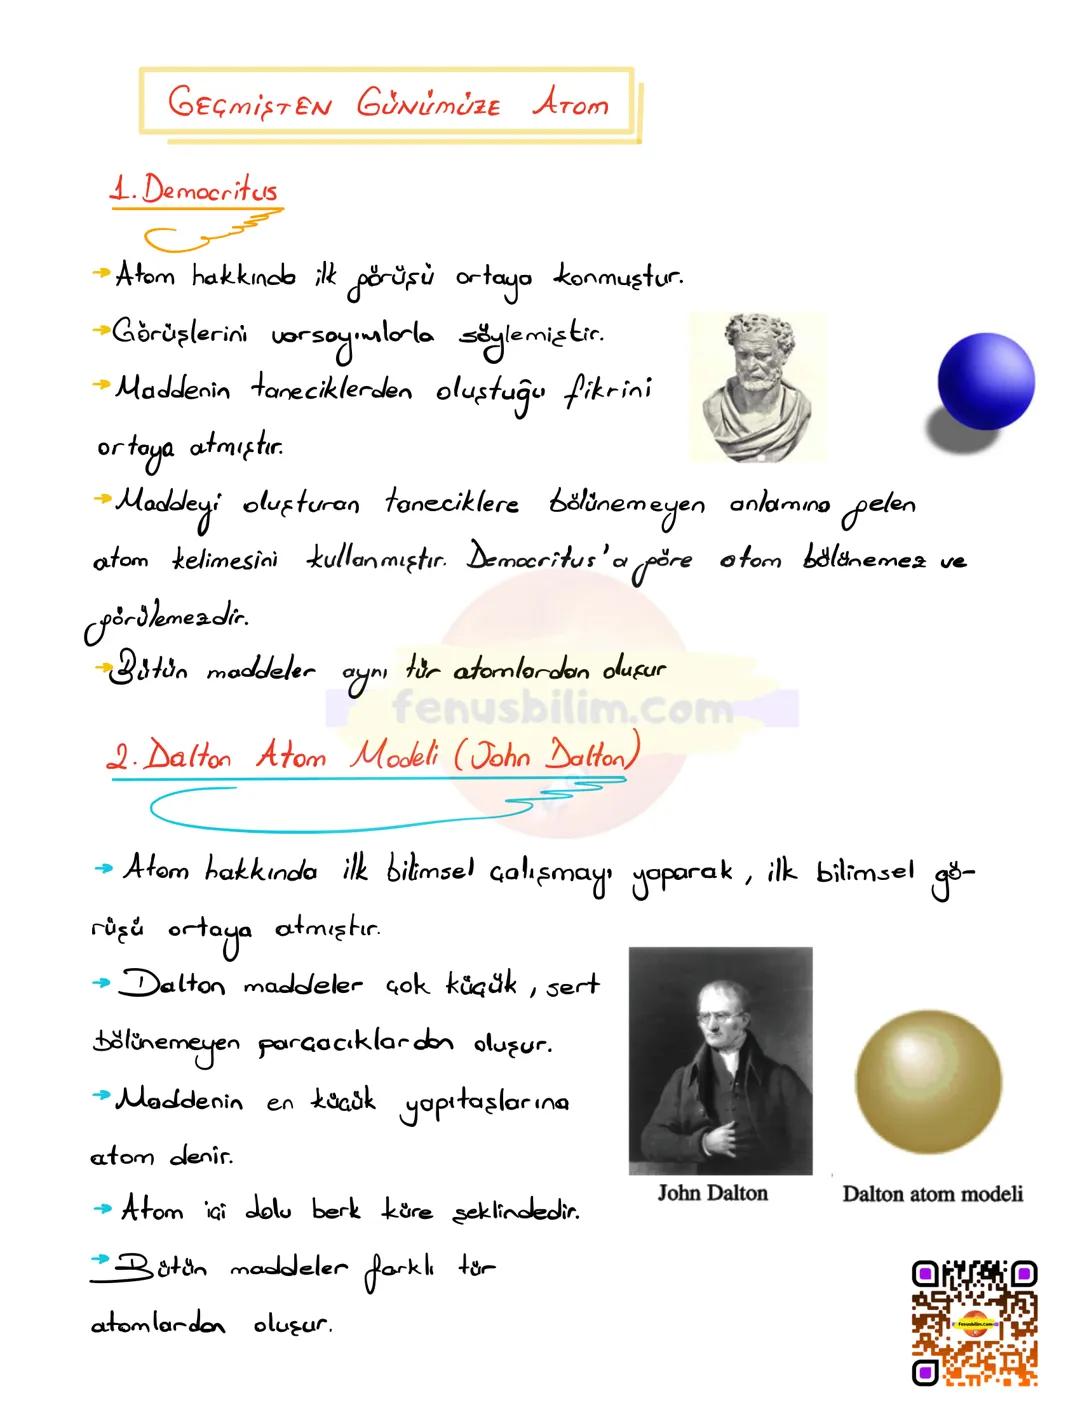 GEÇMİŞTEN GÜNÜMÜZE ATOM
1. Democritus
→ Atom hakkında ilk görüşü ortaya konmuştur.
→ Görüşlerini varsayımlarla söylemiştir.
→ Maddenin taneciklerden oluştuğu fikrini
ortaya atmıştır.
→ Maddeyi oluşturan taneciklere bölünemeyen anlamına gelen
atom kelimesini kullanmıştır. Democritus'a göre atom bölünemez ve
görülemezdir.
→ Bütün maddeler aynı tür atomlardan oluşur
fenusbilim.com
2. Dalton Atom Modeli (John Dalton)
→ Atom hakkında ilk bilimsel çalışmayı yaparak, ilk bilimsel gö-
rüşü ortaya atmıştır.
→ Dalton maddeler çok küçük, sert
bölünemeyen parçacıklardan oluşur.
→ Maddenin en küçük yapıtaşlarına
atom denir.
→ Atom içi dolu berk küre şeklindedir.
→ Bütün maddeler farklı tür
atomlardan oluşur.
John Dalton
Dalton atom modeli
fenusbilim.com